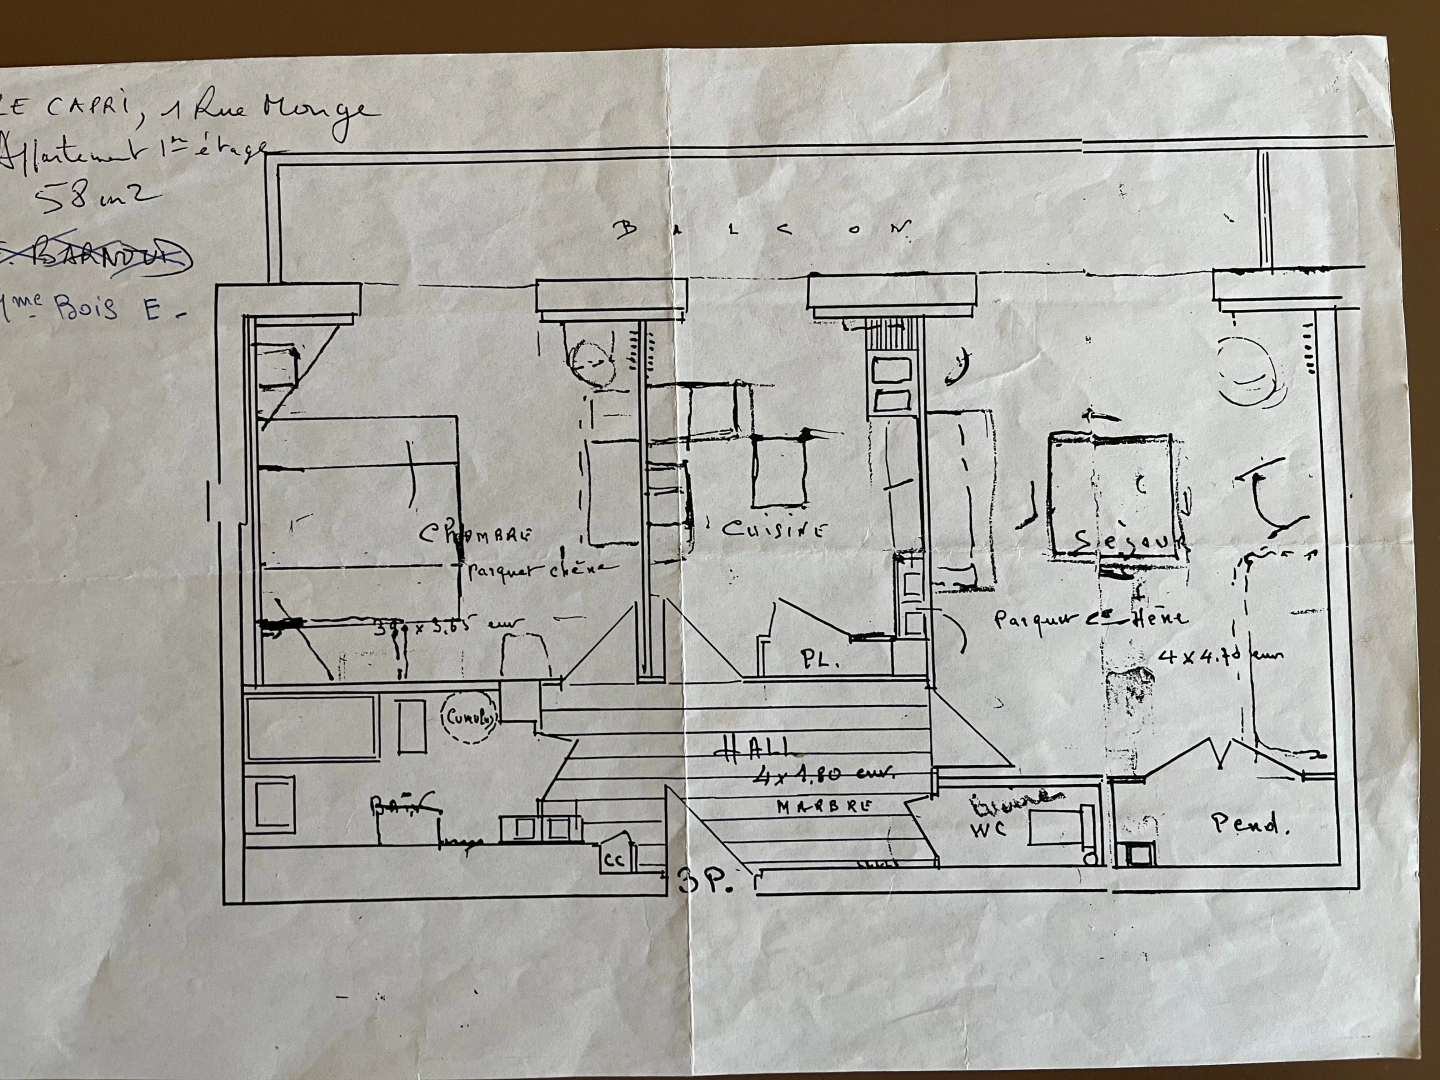 LE CAPRI, 1 Rue Monge
Appartement 1er étage
58 m2
BARNOUX
Mme BOIS E.
BALCON
CHAMBRE
Parquet chêne
x 3.65 env
CUISINE
PL.
Séjour
Parquet chêne
4 x 4.70 env
CUMULUS
BAIN
HALL
4 x 1.80 env.
MARBRE
WC
Pend.
CC
3P.